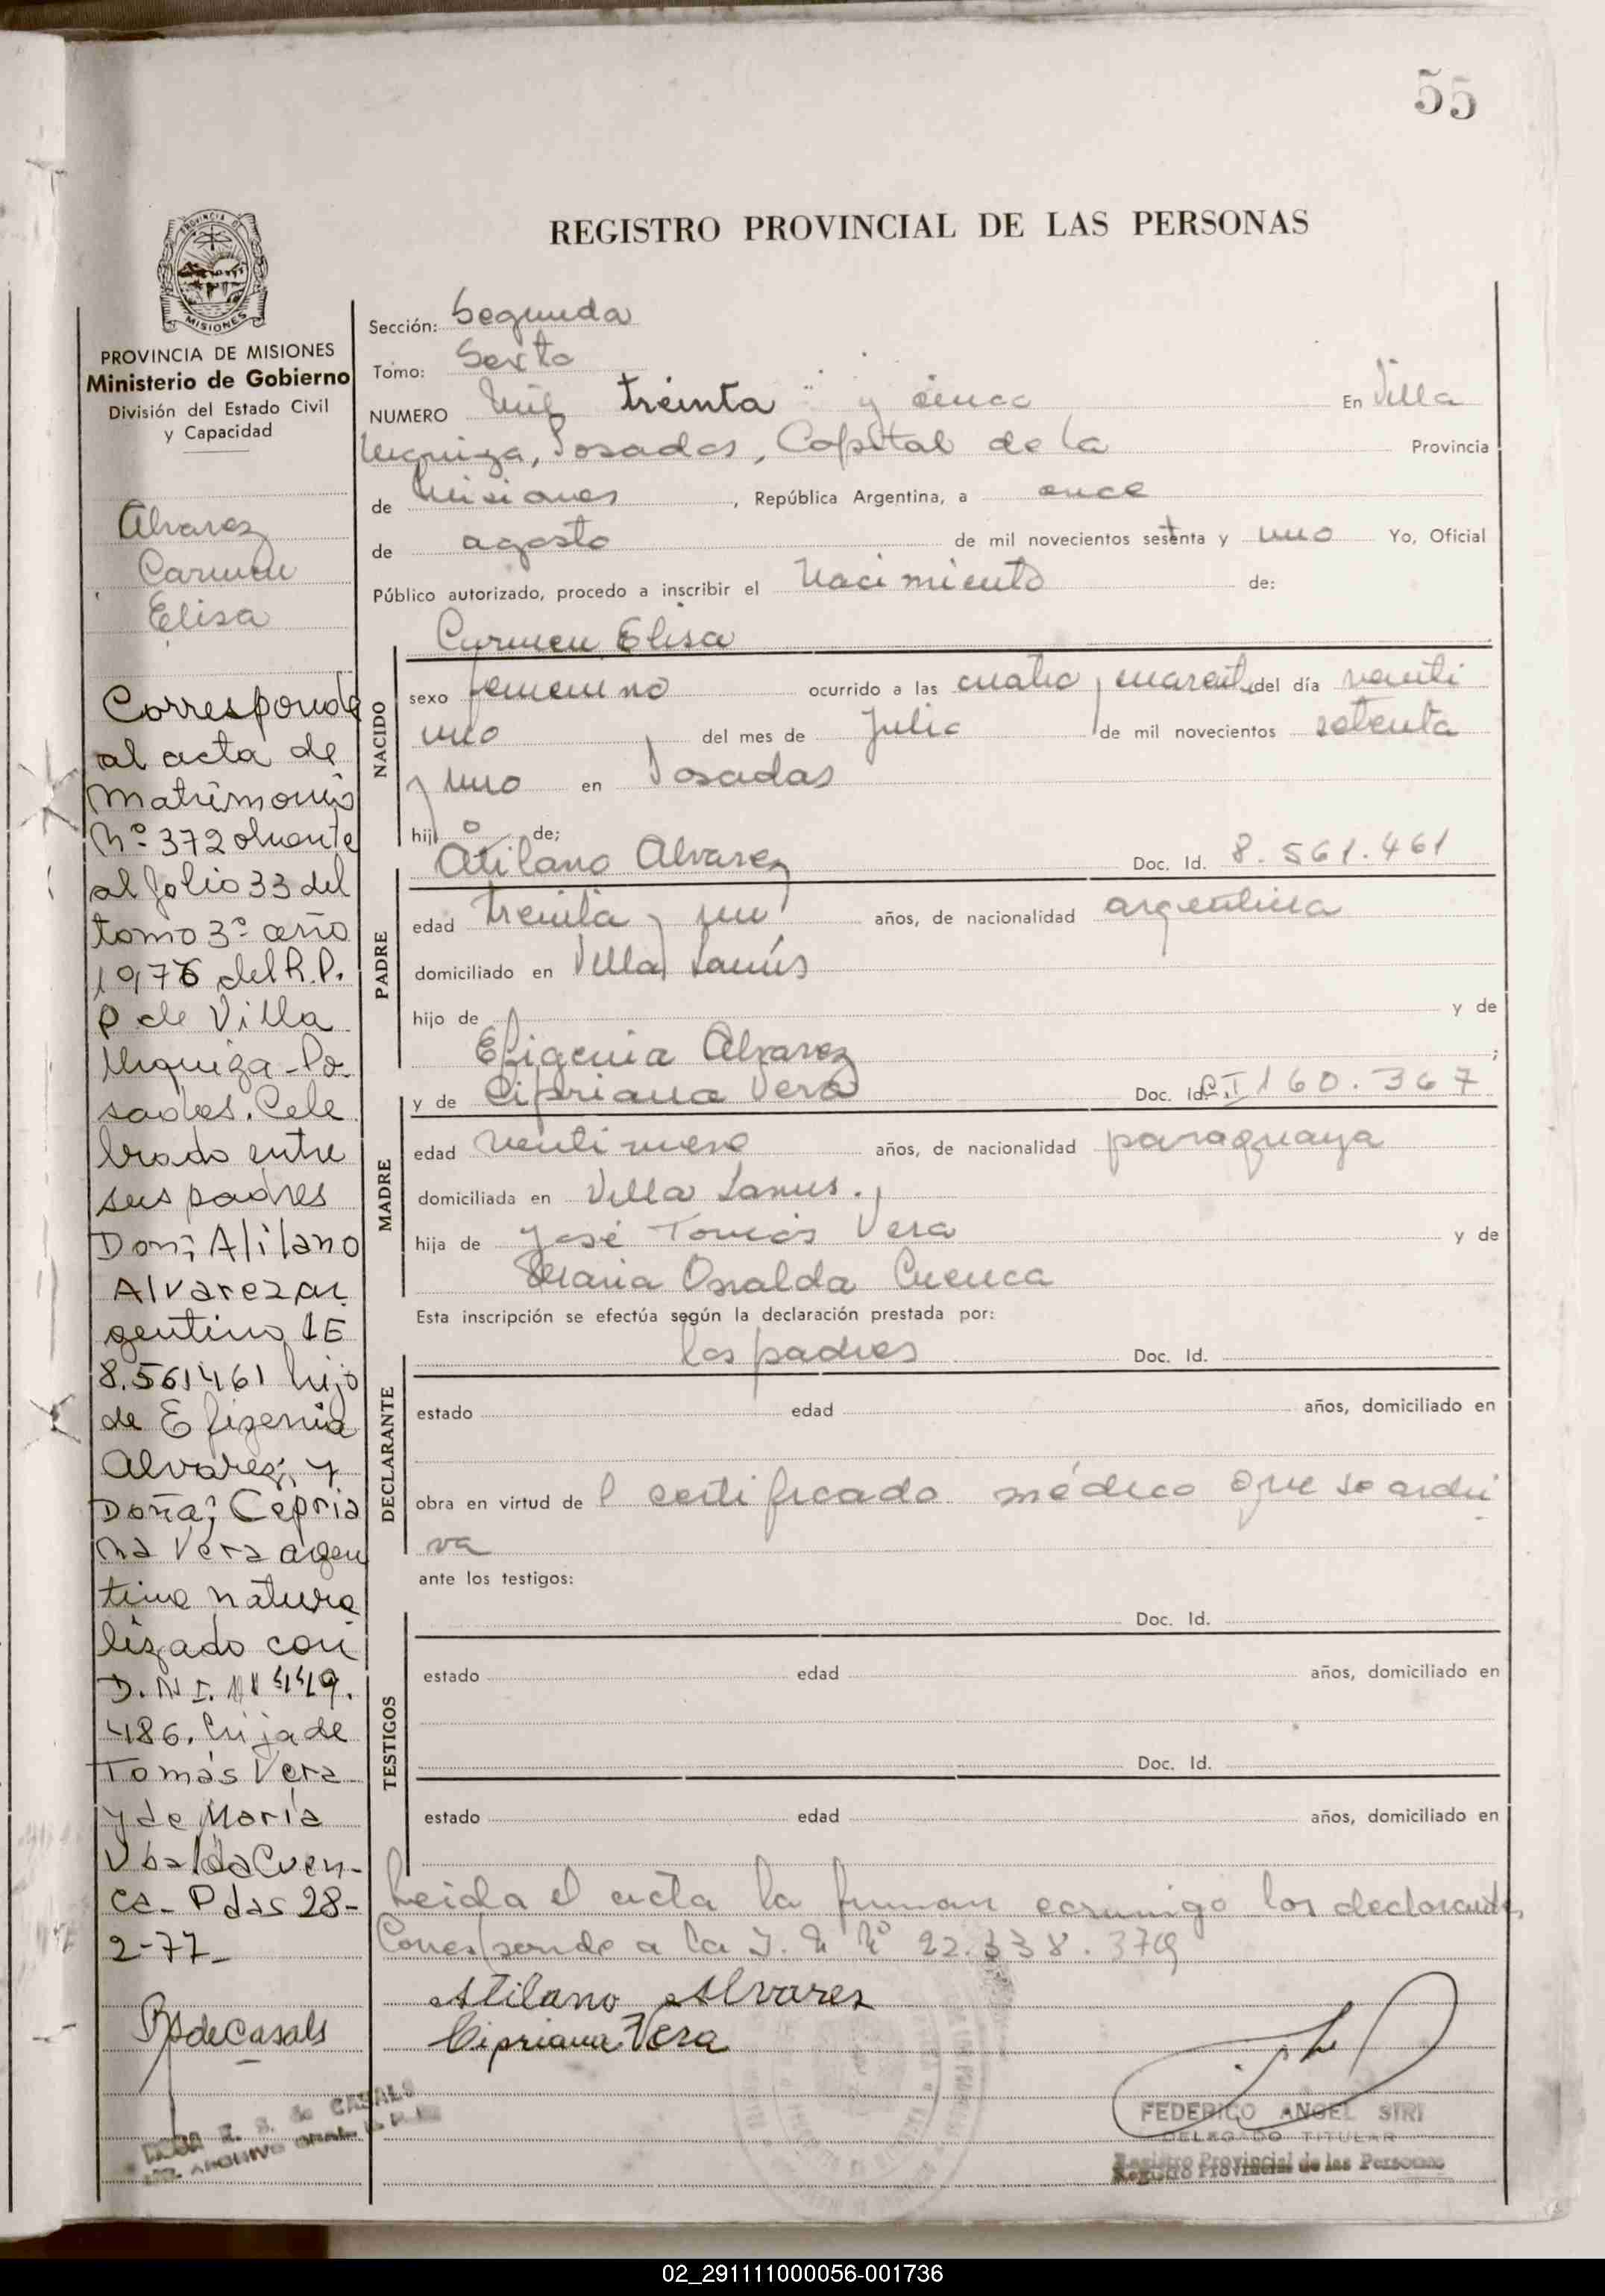 55
REGISTRO PROVINCIAL DE LAS PERSONAS
PROVINCIA DE MISIONES
Ministerio de Gobierno
División del Estado Civil
y Capacidad
Alvarez
Carmen
Elisa
Corresponde
al acta de
Matrimonio
Nº 372 obrante
al folio 33 del
tomo 3º año
1976 del R.P.
P de Villa
Urquiza-Po
sadas. Cele
brado entre
sus padres
Don; Atilano
Alvarez ar
gentino LE
8.561461 hijo
de Efigenia
Alvarez; y
Doña; Cepria
na Vera agen
tina natura
lizado con
D.N.I.
486. hija de
Tomás Vera
y de María
Ubalda Cuen-
ca- Pdas 28-
2-77-
RSdeCasals
E. S. de CASALS
ARCHIVO GRAL.
Sección: Segunda
Tomo: Sexto
NUMERO Mil treinta y cinco En Villa
Urquiza, Posadas, Capital de la Provincia
de Misiones, República Argentina, a once
de agosto de mil novecientos setenta y uno Yo, Oficial
Público autorizado, procedo a inscribir el Nacimiento de:
Carmen Elisa
NACIDO
sexo femenino ocurrido a las cuatro y cuarenta del día veinti
uno del mes de Julio de mil novecientos setenta
y uno en Posadas
hijo de;
Atilano Alvarez Doc. Id. 8.561.461
PADRE
edad treinta y un años, de nacionalidad argentina
domiciliado en Villa Lanús
hijo de y de
Efigenia Alvarez ;
y de Cipriana Vera Doc. Id. C.I 160.367
MADRE
edad veintinueve años, de nacionalidad paraguaya
domiciliada en Villa Lanus.
hija de José Tomás Vera y de
Maria Osvalda Cuenca
Esta inscripción se efectúa según la declaración prestada por:
los padres Doc. Id.
DECLARANTE
estado edad años, domiciliado en
obra en virtud de l certificado médico que se archi
va
ante los testigos:
Doc. Id.
TESTIGOS
estado edad años, domiciliado en
Doc. Id.
estado edad años, domiciliado en
Leida el acta la firman conmigo los declarantes,
Corresponde a la Nº 22.338.379
Atilano Alvarez
Cipriana Vera
FEDERICO ANGEL SIRI
DELEGADO TITULAR
Registro Provincial de las Personas
02_291111000056-001736